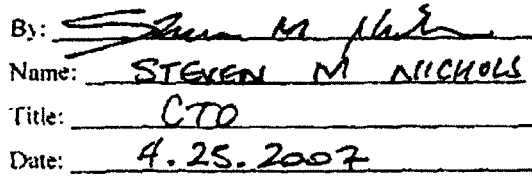 By: Steven M Nichols
Name: STEVEN M NICHOLS
Title: CTO
Date: 4.25.2007